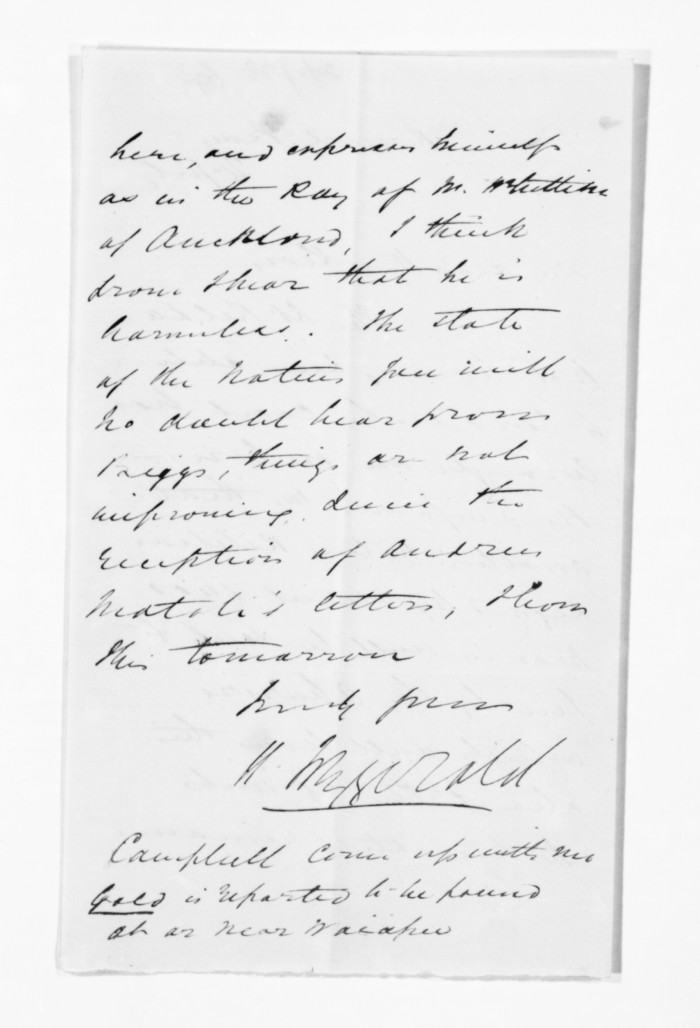 here, and expresses himself
as in the Pay of Mr.
of Auckland, I think
from I hear that he is
harmless. The state
of the Natives you will
no doubt hear from
Biggs, things are not
improving since the
reception of Andrew
letters, I leave
this tomorrow
Truly yours
H. Fitzgerald
Campbell come up with me
Gold is reported to be found
at or near Waiapu